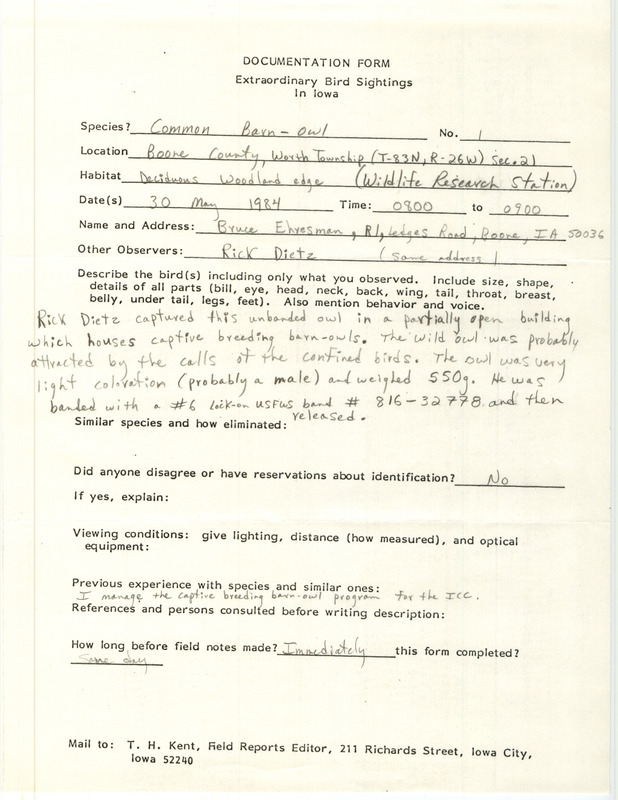 DOCUMENTATION FORM
Extraordinary Bird Sightings
In Iowa
Species? Common Barn-owl No. 1
Location Boone County, Worth Township (T-83N, R-26W) Sec. 21
Habitat Deciduous Woodland edge (Wildlife Research Station)
Date(s) 30 May 1984 Time: 0800 to 0900
Name and Address: Bruce Ehresman, R1, Ledges Road, Boone, IA 50036
Other Observers: Rick Dietz (same address)
Describe the bird(s) including only what you observed. Include size, shape,
details of all parts (bill, eye, head, neck, back, wing, tail, throat, breast,
belly, under tail, legs, feet). Also mention behavior and voice.
Rick Dietz captured this unbanded owl in a partially open building
which houses captive breeding barn-owls. The wild owl was probably
attracted by the calls of the confined birds. The owl was very
light coloration (probably a male) and weighed 550g. He was
banded with a #6 lock-on USFWS band # 816-32778 and then
released.
Similar species and how eliminated:
Did anyone disagree or have reservations about identification? No
If yes, explain:
Viewing conditions: give lighting, distance (how measured), and optical
equipment:
Previous experience with species and similar ones:
I manage the captive breeding barn-owl program for the ICC.
References and persons consulted before writing description:
How long before field notes made? Immediately this form completed?
same day
Mail to: T. H. Kent, Field Reports Editor, 211 Richards Street, Iowa City,
Iowa 52240